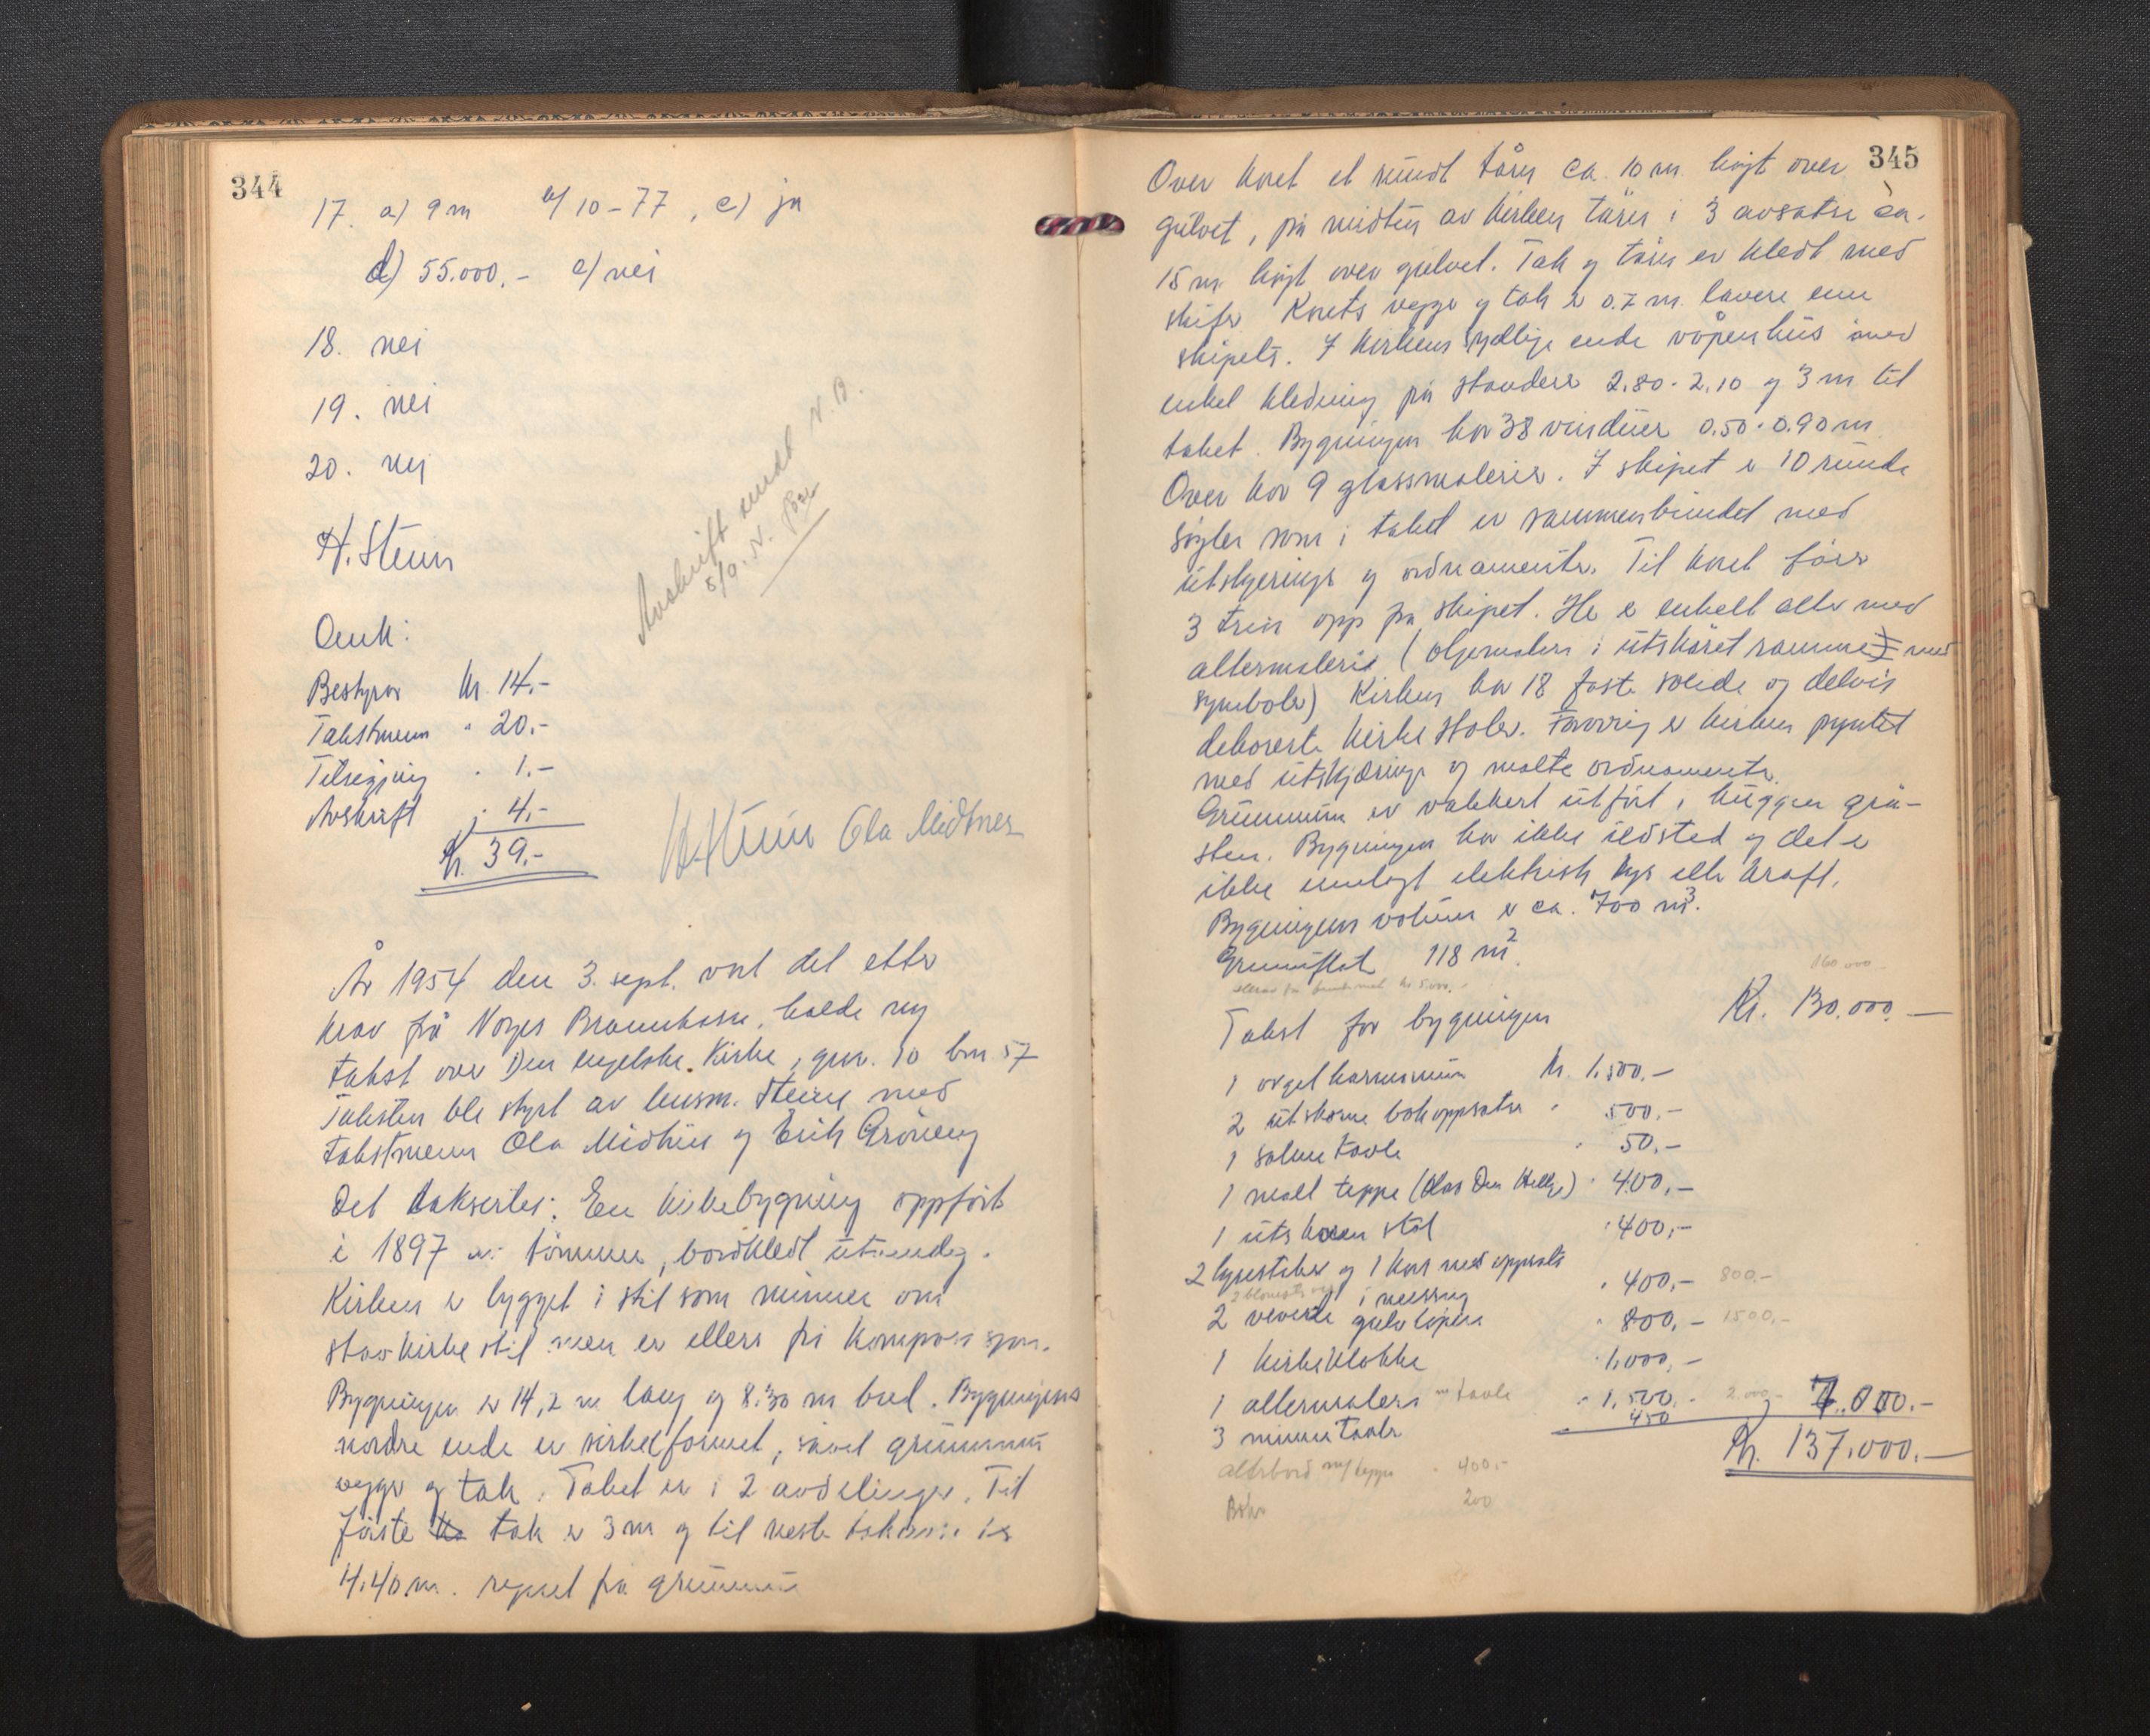 344
17. a) 9 m b) 10-77, c) ja
d) 55.000,- e) nei
18. nei
19. nei
20. nei
H. Stein
Omk:
Bestyrer kr. 14.-
Takstmenn " 20.-
Tilsigjing " 1.-
Avskrift " 4.-
Kr. 39.-
Avskrift sendt N.B.
H. Stein Ola Midtnes
År 1954 den 3. sept. vart det etter
krav frå Norges Brannkasse, halde ny
takst over Den engelske Kirke, gnr. 10 bnr 57
Taksten ble styrt av lensm. Steine med
takstmenn Ola Midtnes og Erik Grøneng
Det takserte: En kirkebygning oppført
i 1897 av tømmer, bordkledt utvendig.
Kirken er bygget i stil som minner om
stavkirkestil men er ellers fri komposisjon.
Bygningen er 14,2 m lang og 8.30 m bred. Bygningens
nordre ende er sirkelformet, såvel grunnmur
vegger og tak. Taket er i 2 avdelinger. Til
første tak er 3 m og til neste
4.40 m. regnet fra grunnmur
345
Over koret et rundt tårn ca. 10 m. høgt over
gulvet, på midten av kirken tårn i 3 avsatser ca.
15 m høgt over gulvet. Tak og tårn er kledt med
skifer. Korets vegger og tak er 0.7 m. lavere enn
skipets. I kirkens sydlige ende våpenhus med
enkel kledning på stendere 2.80 · 2.10 og 3 m til
taket. Bygningen har 38 vinduer 0.50 · 0.90 m
Over kor 9 glassmalerier. I skipet er 10 runde
søyler som i taket er sammenbundet med
utskjeringer og ordnamenter. Til koret fører
3 trin opp fra skipet. Her er enkelt alter med
altermaleri (oljemaleri i utskåret ramme) med
symboler) Kirken har 18 faste solide og delvis
dekorerte kirkestoler. Forøvrig er kirken pyntet
med utskjæringer og malte ordnamenter.
Grunnmuren er vakkert utført i huggen grå-
sten. Bygningen har ikke ildsted og det er
ikke innlagt elektrisk lys eller kraft.
Bygningens volum er ca. 700 m³.
Grunnflate 118 m²
160 000
Takst for bygningen Kr. 130.000.-
1 orgelharmonium kr. 1.500.-
2 utskorne bokoppsatser " 500.-
1 salmetavle " 50.-
1 malt teppe (Olav Den Hellige) " 400.-
1 utskoren stol " 400.-
2 lysestaker og 1 kors med oppsats
i messing " 400.- 800.-
2 vevede gulvløpere " 800.- 1500.-
1 kirkeklokke " 1.000.-
1 altermaleri m tavle " 1.500.- 2.000,- 7.000.-
3 minnetavler 450
Kr. 137.000.-
alterbord m/ teppe " 400.-
Bøker 200